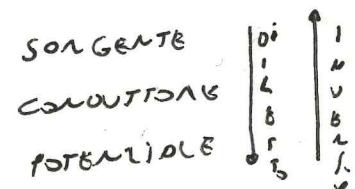 SORGENTE
CONDUTTORE
POTENZIALE
DIRETTO
INVERSO